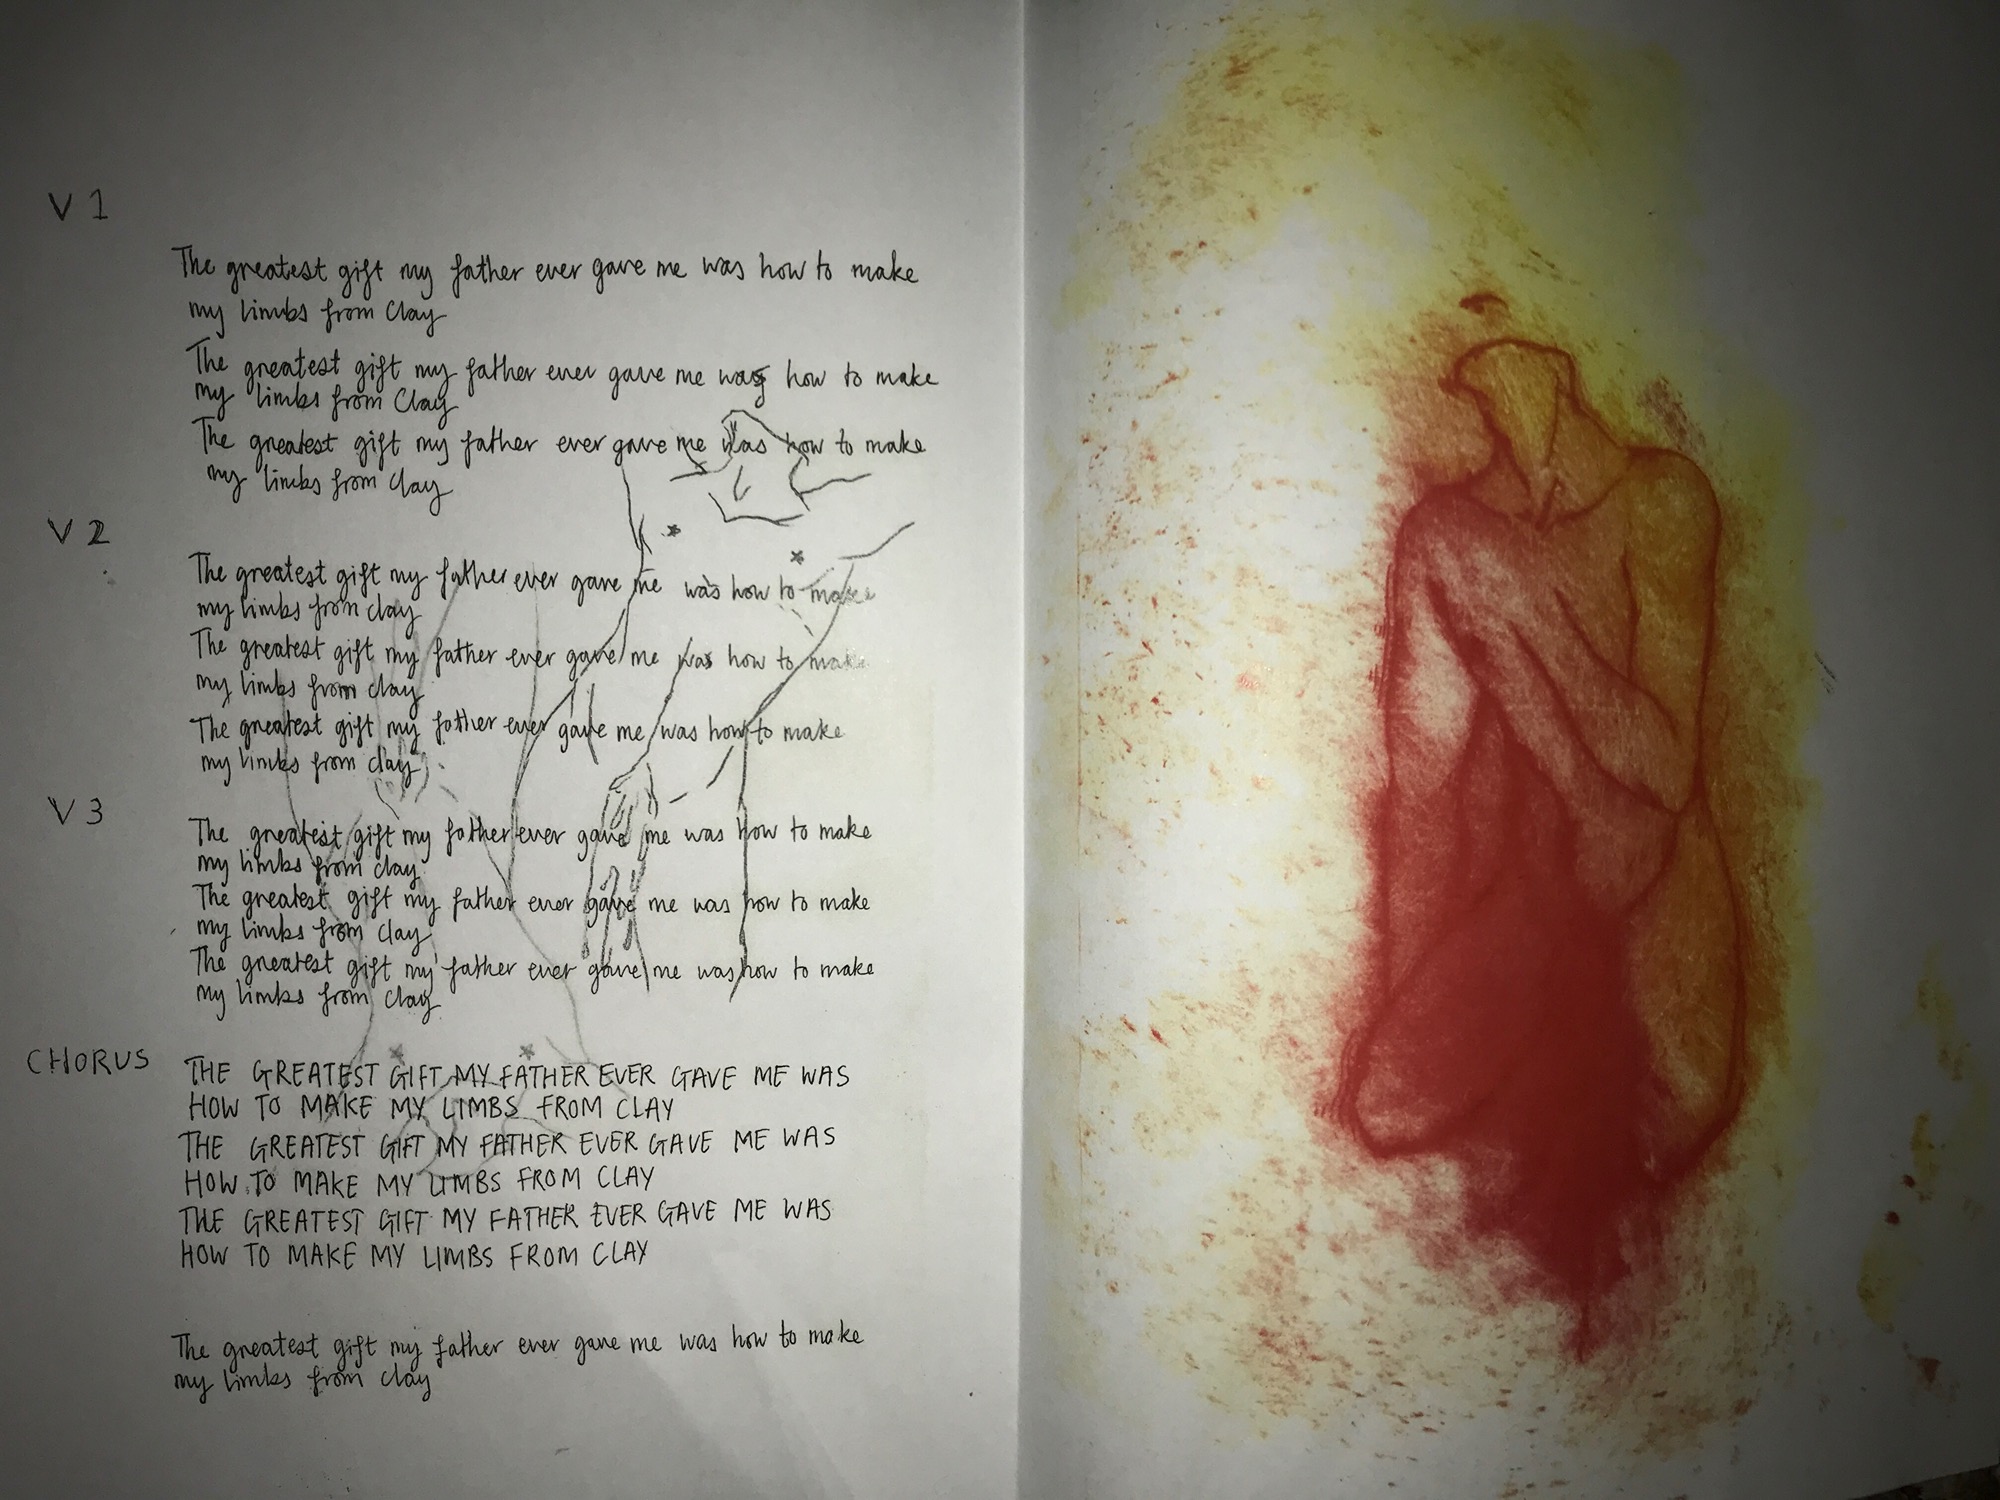 V 1
The greatest gift my father ever gave me was how to make
my limbs from clay
The greatest gift my father ever gave me was how to make
my limbs from clay
The greatest gift my father ever gave me was how to make
my limbs from clay
V 2
The greatest gift my father ever gave me was how to make
my limbs from clay
The greatest gift my father ever gave me was how to make
my limbs from clay
The greatest gift my father ever gave me was how to make
my limbs from clay
V 3
The greatest gift my father ever gave me was how to make
my limbs from clay
The greatest gift my father ever gave me was how to make
my limbs from clay
The greatest gift my father ever gave me was how to make
my limbs from clay
CHORUS THE GREATEST GIFT MY FATHER EVER GAVE ME WAS
HOW TO MAKE MY LIMBS FROM CLAY
THE GREATEST GIFT MY FATHER EVER GAVE ME WAS
HOW TO MAKE MY LIMBS FROM CLAY
THE GREATEST GIFT MY FATHER EVER GAVE ME WAS
HOW TO MAKE MY LIMBS FROM CLAY
The greatest gift my father ever gave me was how to make
my limbs from clay